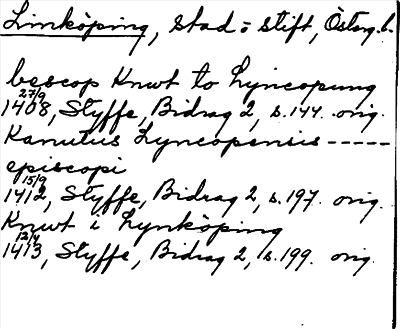 Linköping, stad o stift, Österg.l.
bescop Knwt to Lyncopung
27/9
1408, Styffe, Bidrag 2, s. 144. orig.
Kanutus Lyncopensis -----
episcopi
15/9
1412, Styffe, Bidrag 2, s. 197. orig.
Knwt i Lynköping
12/4
1413, Styffe, Bidrag 2, s. 199. orig.